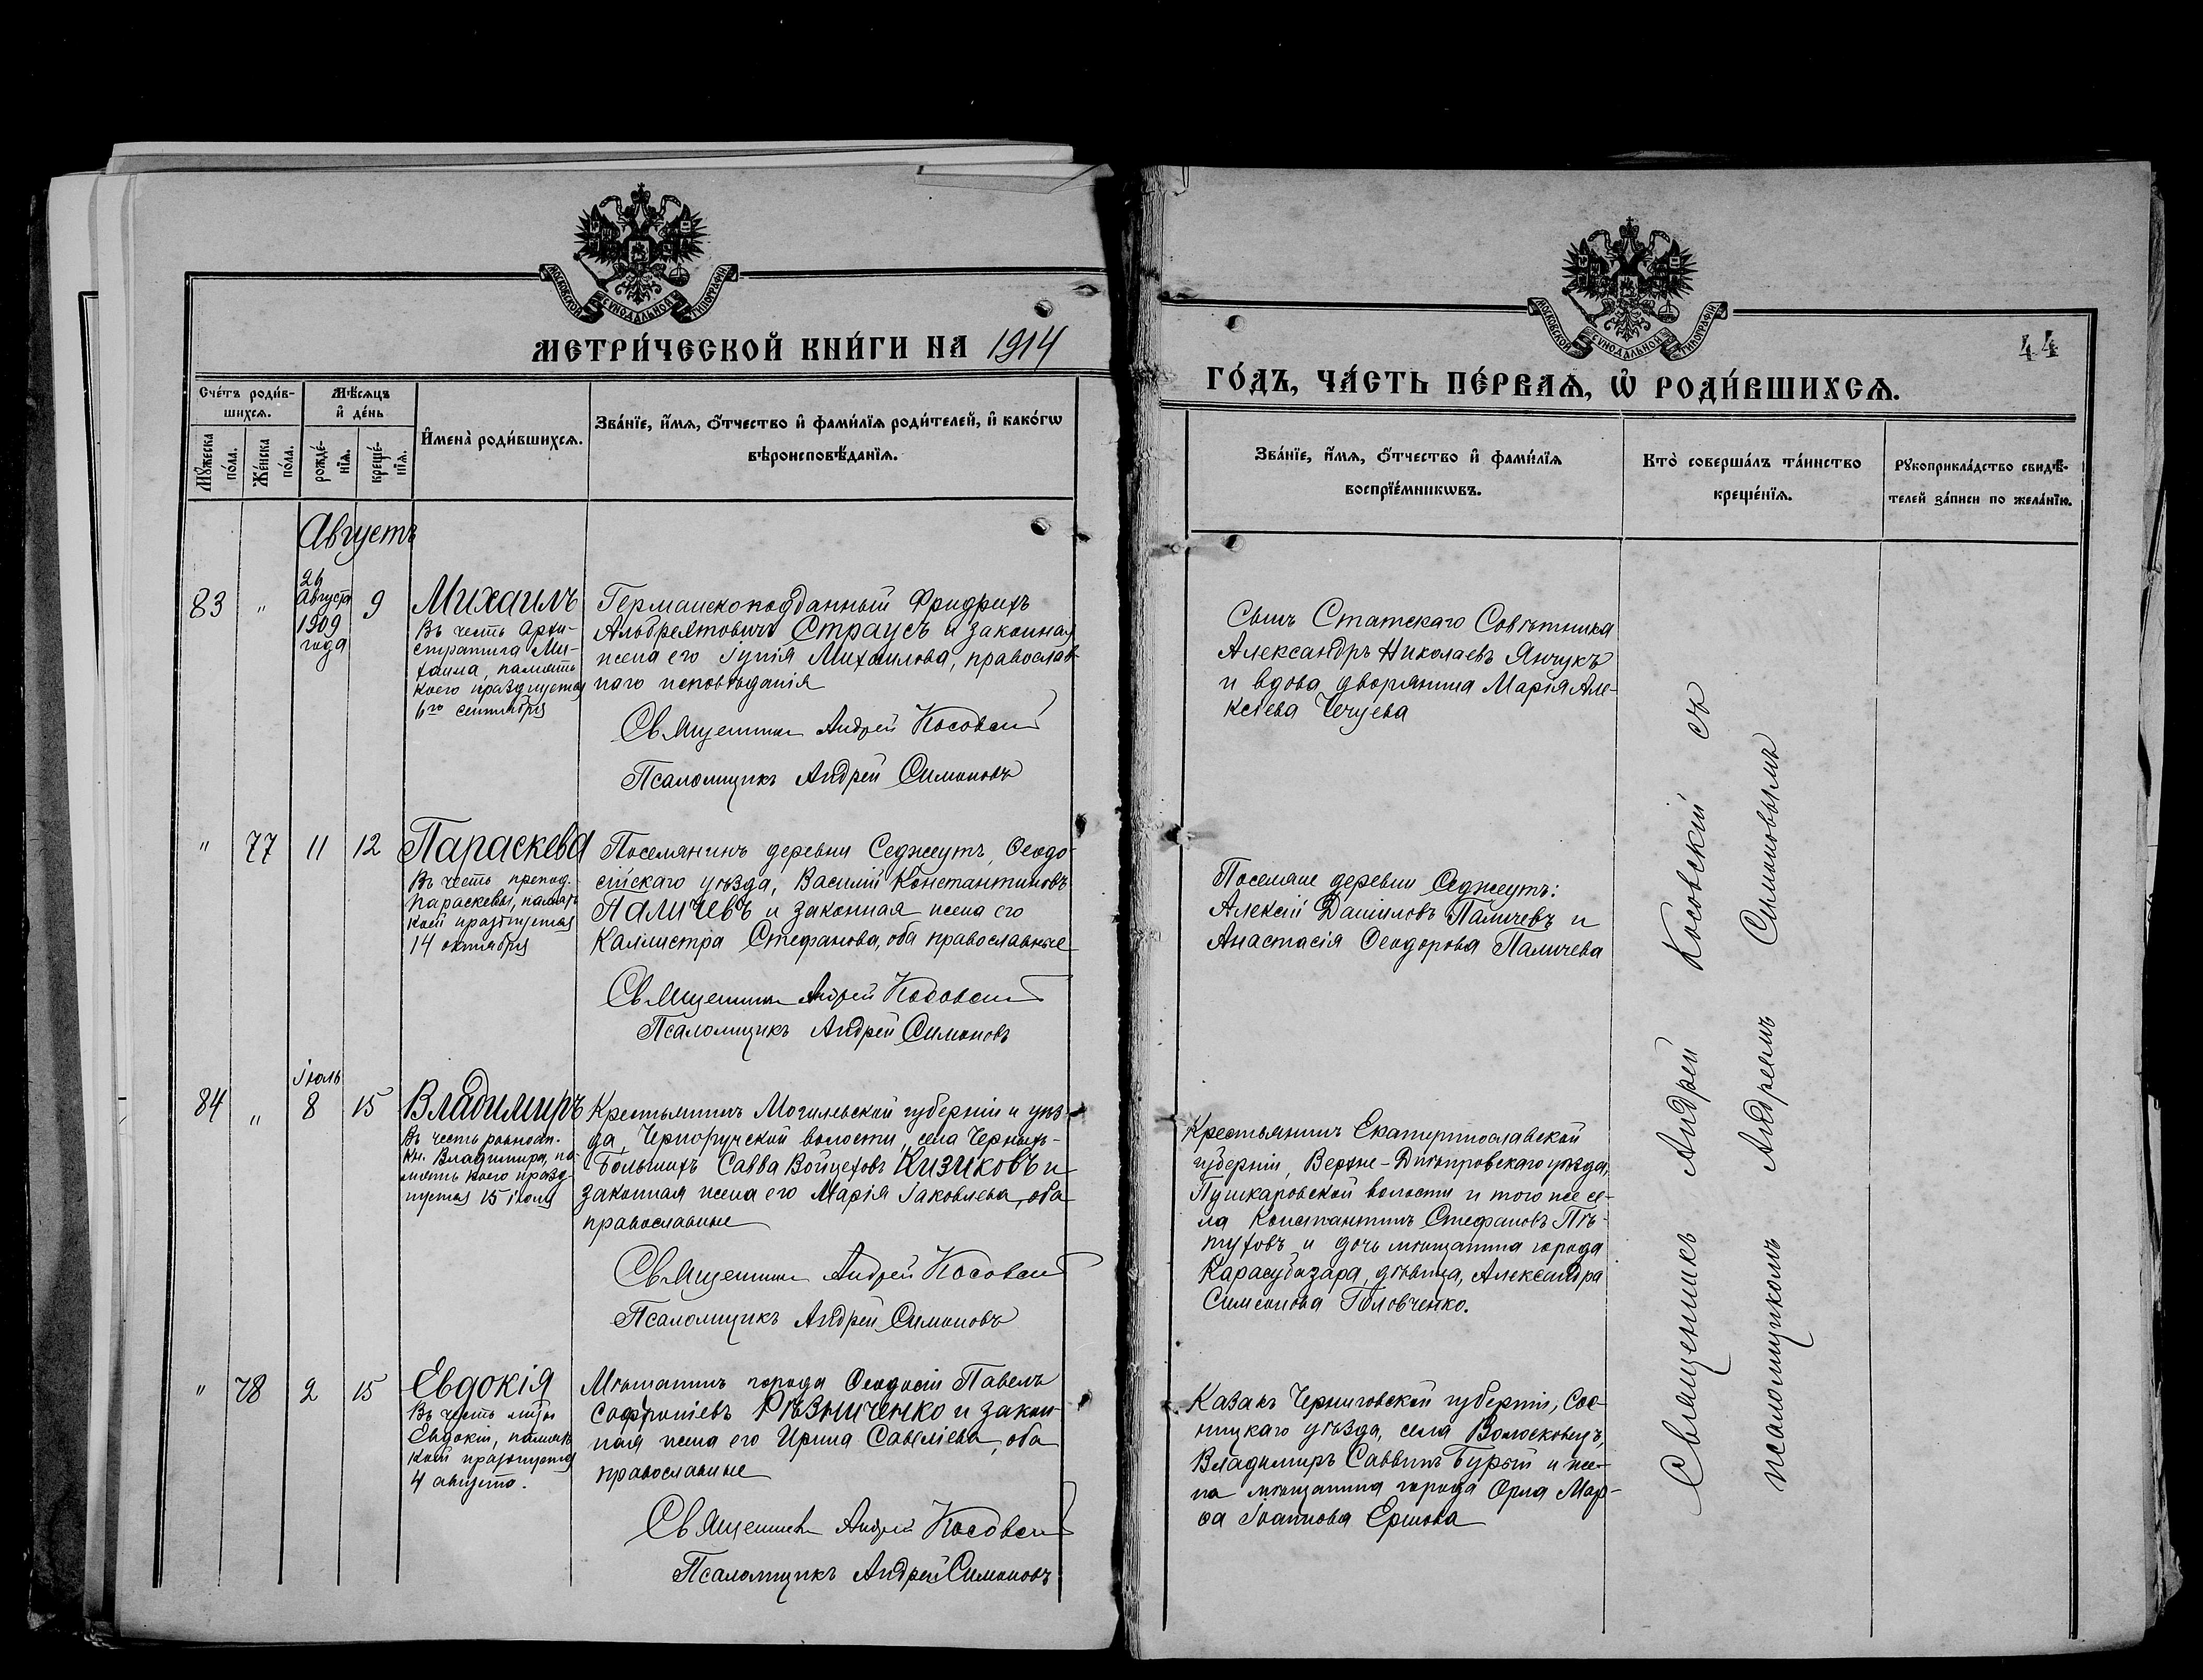 МОСКОВСКОЙ СѴНОДАЛЬНОЙ ТИПОГРАФІИ
МЕТРИ́ЧЕСКОЙ КНИ́ГИ НА 1914
Сче́тъ роди́в-
шихсѧ.
Мѣ́сѧцъ
и҆ де́нь
Мꙋ́жеска
по́ла.
Же́нска
по́ла.
рожде́-
нїѧ.
креще́-
нїѧ.
И҆мена̀ роди́вшихсѧ.
Зва́нїе, и҆́мѧ, ѻ҆́тчество и҆ фами́лїѧ роди́телей, и҆ како́гѡ
вѣроисповѣ́данїѧ.
Августъ
83
"
26
Августа
1909
года
9
Михаилъ
Въ честь Архи-
стратига Ми-
хаила, память
коего празднуется
6го сентября
Германскоподданный Фридрихъ
Альбрехтовичъ Страусъ и законная
жена его Іунія Михаилова, православ-
наго исповѣданія
Священникъ Андрей Косовскій
Псаломщикъ Андрей Симоновъ
"
77
11
12
Параскева
Въ честь препод.
Параскевы, память
коей празднуется
14 октября
Поселянинъ деревни Седжеутъ, Ѳеодо-
сійскаго уѣзда, Василій Константиновъ
Паличевъ и законная жена его
Каллистра Стефанова, оба православные
Священникъ Андрей Косовскій
Псаломщикъ Андрей Симоновъ
84
"
іюль
8
15
Владимиръ
Въ честь равноап.
кн. Владимира, па-
мять коего празд-
нуется 15 іюля
Крестьянинъ Могилевской губерніи и уѣз-
да, Черноручской волости, села Черныхъ-
Большихъ Савва Войцеховъ Кизиковъ и
законная жена его Марія Іаковлева, оба
православные
Священникъ Андрей Косовскій
Псаломщикъ Андрей Симоновъ
"
78
2
15
Евдокія
Въ честь мцы
Евдокіи, память
коей празднуется
4 августа.
Мѣщанинъ города Ѳеодосіи Павелъ
Софроніевъ Рѣзниченко и закон-
ная жена его Ирина Савеліева, оба
православные
Священникъ Андрей Косовскій
Псаломщикъ Андрей Симоновъ
МОСКОВСКОЙ СѴНОДАЛЬНОЙ ТИПОГРАФІИ
44
ГО́ДЪ, ЧА́СТЬ ПЕ́РВАѦ, Ѡ҆ РОДИ́ВШИХСѦ.
Зва́нїе, и҆́мѧ, ѻ҆́тчество и҆ фами́лїѧ
воспрїе́мникѡвъ.
Кто̀ соверша́лъ та́инство
креще́нїѧ.
Рꙋкоприкла́дство свидѣ́-
телей за́писи по жела́нїю.
Сынъ Статскаго Совѣтника
Александръ Николаевъ Янчукъ
и вдова дворянина Марія Але-
ксѣева Чечуева
Поселяне деревни Седжеутъ:
Алексій Даниловъ Паличевъ и
Анастасія Ѳеодорова Паличева
Крестьянинъ Екатеринославской
губерніи, Верхне-Днѣпровскаго уѣзда,
Пушкаровской волости и того же се-
ла Константинъ Стефановъ Пѣ-
туховъ и дочь мѣщанина города
Карасубазара, дѣвица, Александра
Симеонова Головченко.
Казакъ Черниговской губерніи, Сос-
ницкаго уѣзда, села Волосковецъ,
Владимиръ Саввинъ Бурый и же-
на мѣщанина города Орла Мар-
ѳа Іоаннова Ершова
Священникъ Андрей Косовскій съ
псаломщикомъ Андреемъ Симоновымъ